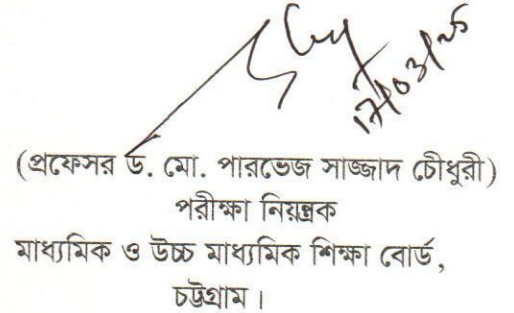 ১৭/০৩/২৫
(প্রফেসর ড. মো. পারভেজ সাজ্জাদ চৌধুরী)
পরীক্ষা নিয়ন্ত্রক
মাধ্যমিক ও উচ্চ মাধ্যমিক শিক্ষা বোর্ড,
চট্টগ্রাম।